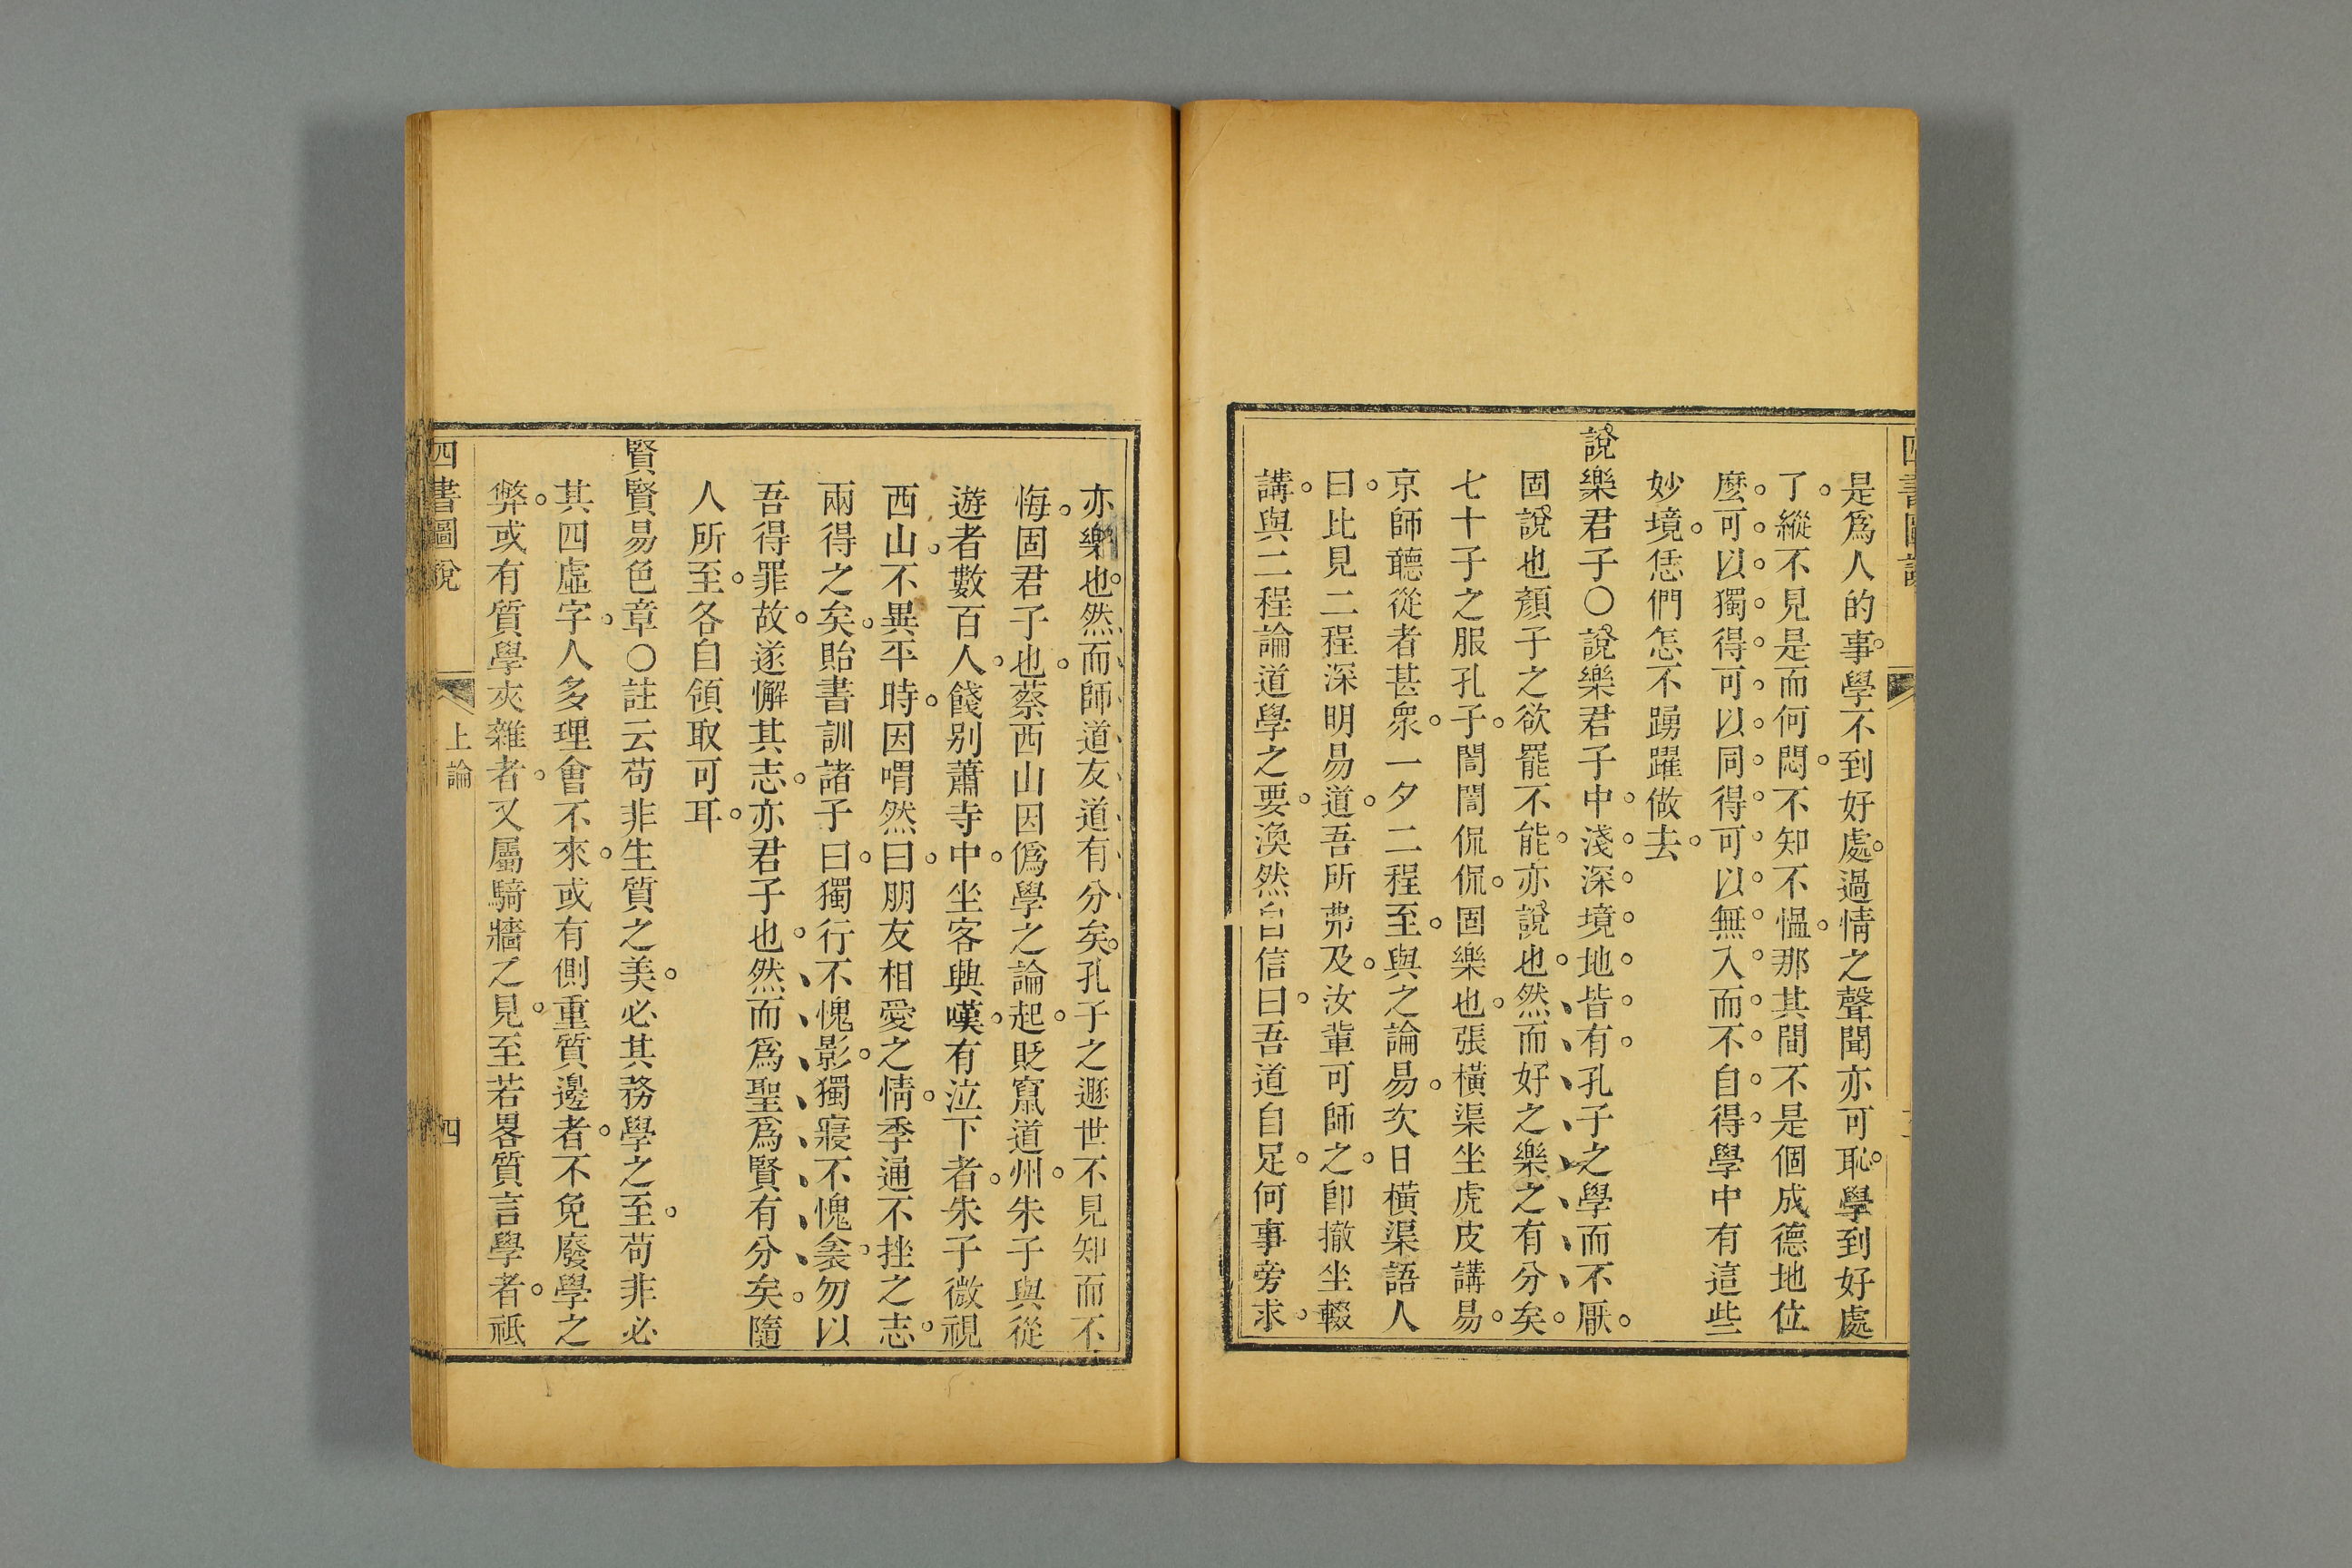 是爲人的事學不到好處過情之聲聞亦可恥學到好處
了縱不見是而何悶不知不慍那其間不是個成德地位
麼可以獨得可以同得可以無入而不自得學中有這些
妙境恁們怎不踴躍做去
說樂君子〇說樂君子中淺深境地皆有孔子之學而不厭
固說也顏子之欲罷不能亦說也然而好之樂之有分矣
七十子之服孔子誾誾侃侃固樂也張橫渠坐虎皮講易
京師聽從者甚衆一夕二程至與之論易次日橫渠語人
曰比見二程深明易道吾所弗及汝輩可師之卽撤坐輟
講與二程論道學之要渙然自信曰吾道自足何事旁求
亦樂也然而師道友道有分矣孔子之遯世不見知而不
悔固君子也蔡西山因僞學之論起貶竄道州朱子與從
遊者數百人餞別蕭寺中坐客興嘆有泣下者朱子微視
西山不異平時因喟然曰朋友相愛之情季通不挫之志
兩得之矣貽書訓諸子曰獨行不愧影獨寢不愧衾勿以
吾得罪故遂懈其志亦君子也然而爲聖爲賢有分矣隨
人所至各自領取可耳
賢賢易色章〇註云苟非生質之美必其務學之至苟非必
其四虛字人多理會不來或有側重質邊者不免廢學之
弊或有質學夾雜者又屬騎牆之見至若畧質言學者祗
四書圖說
上論
四